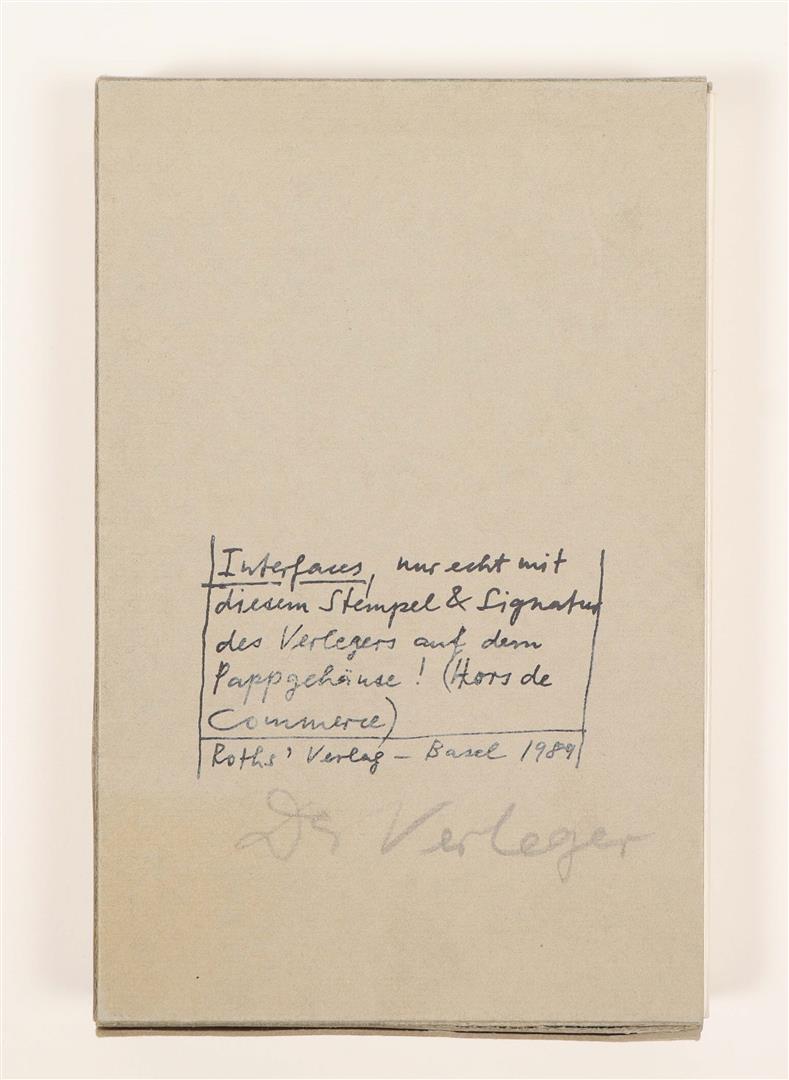 Interfaces, nur echt mit
diesem Stempel & Signatur
des Verlegers auf dem
Pappgehäuse ! (Hors de
Commerce)
Roths' Verlag – Basel 1989
Der Verleger